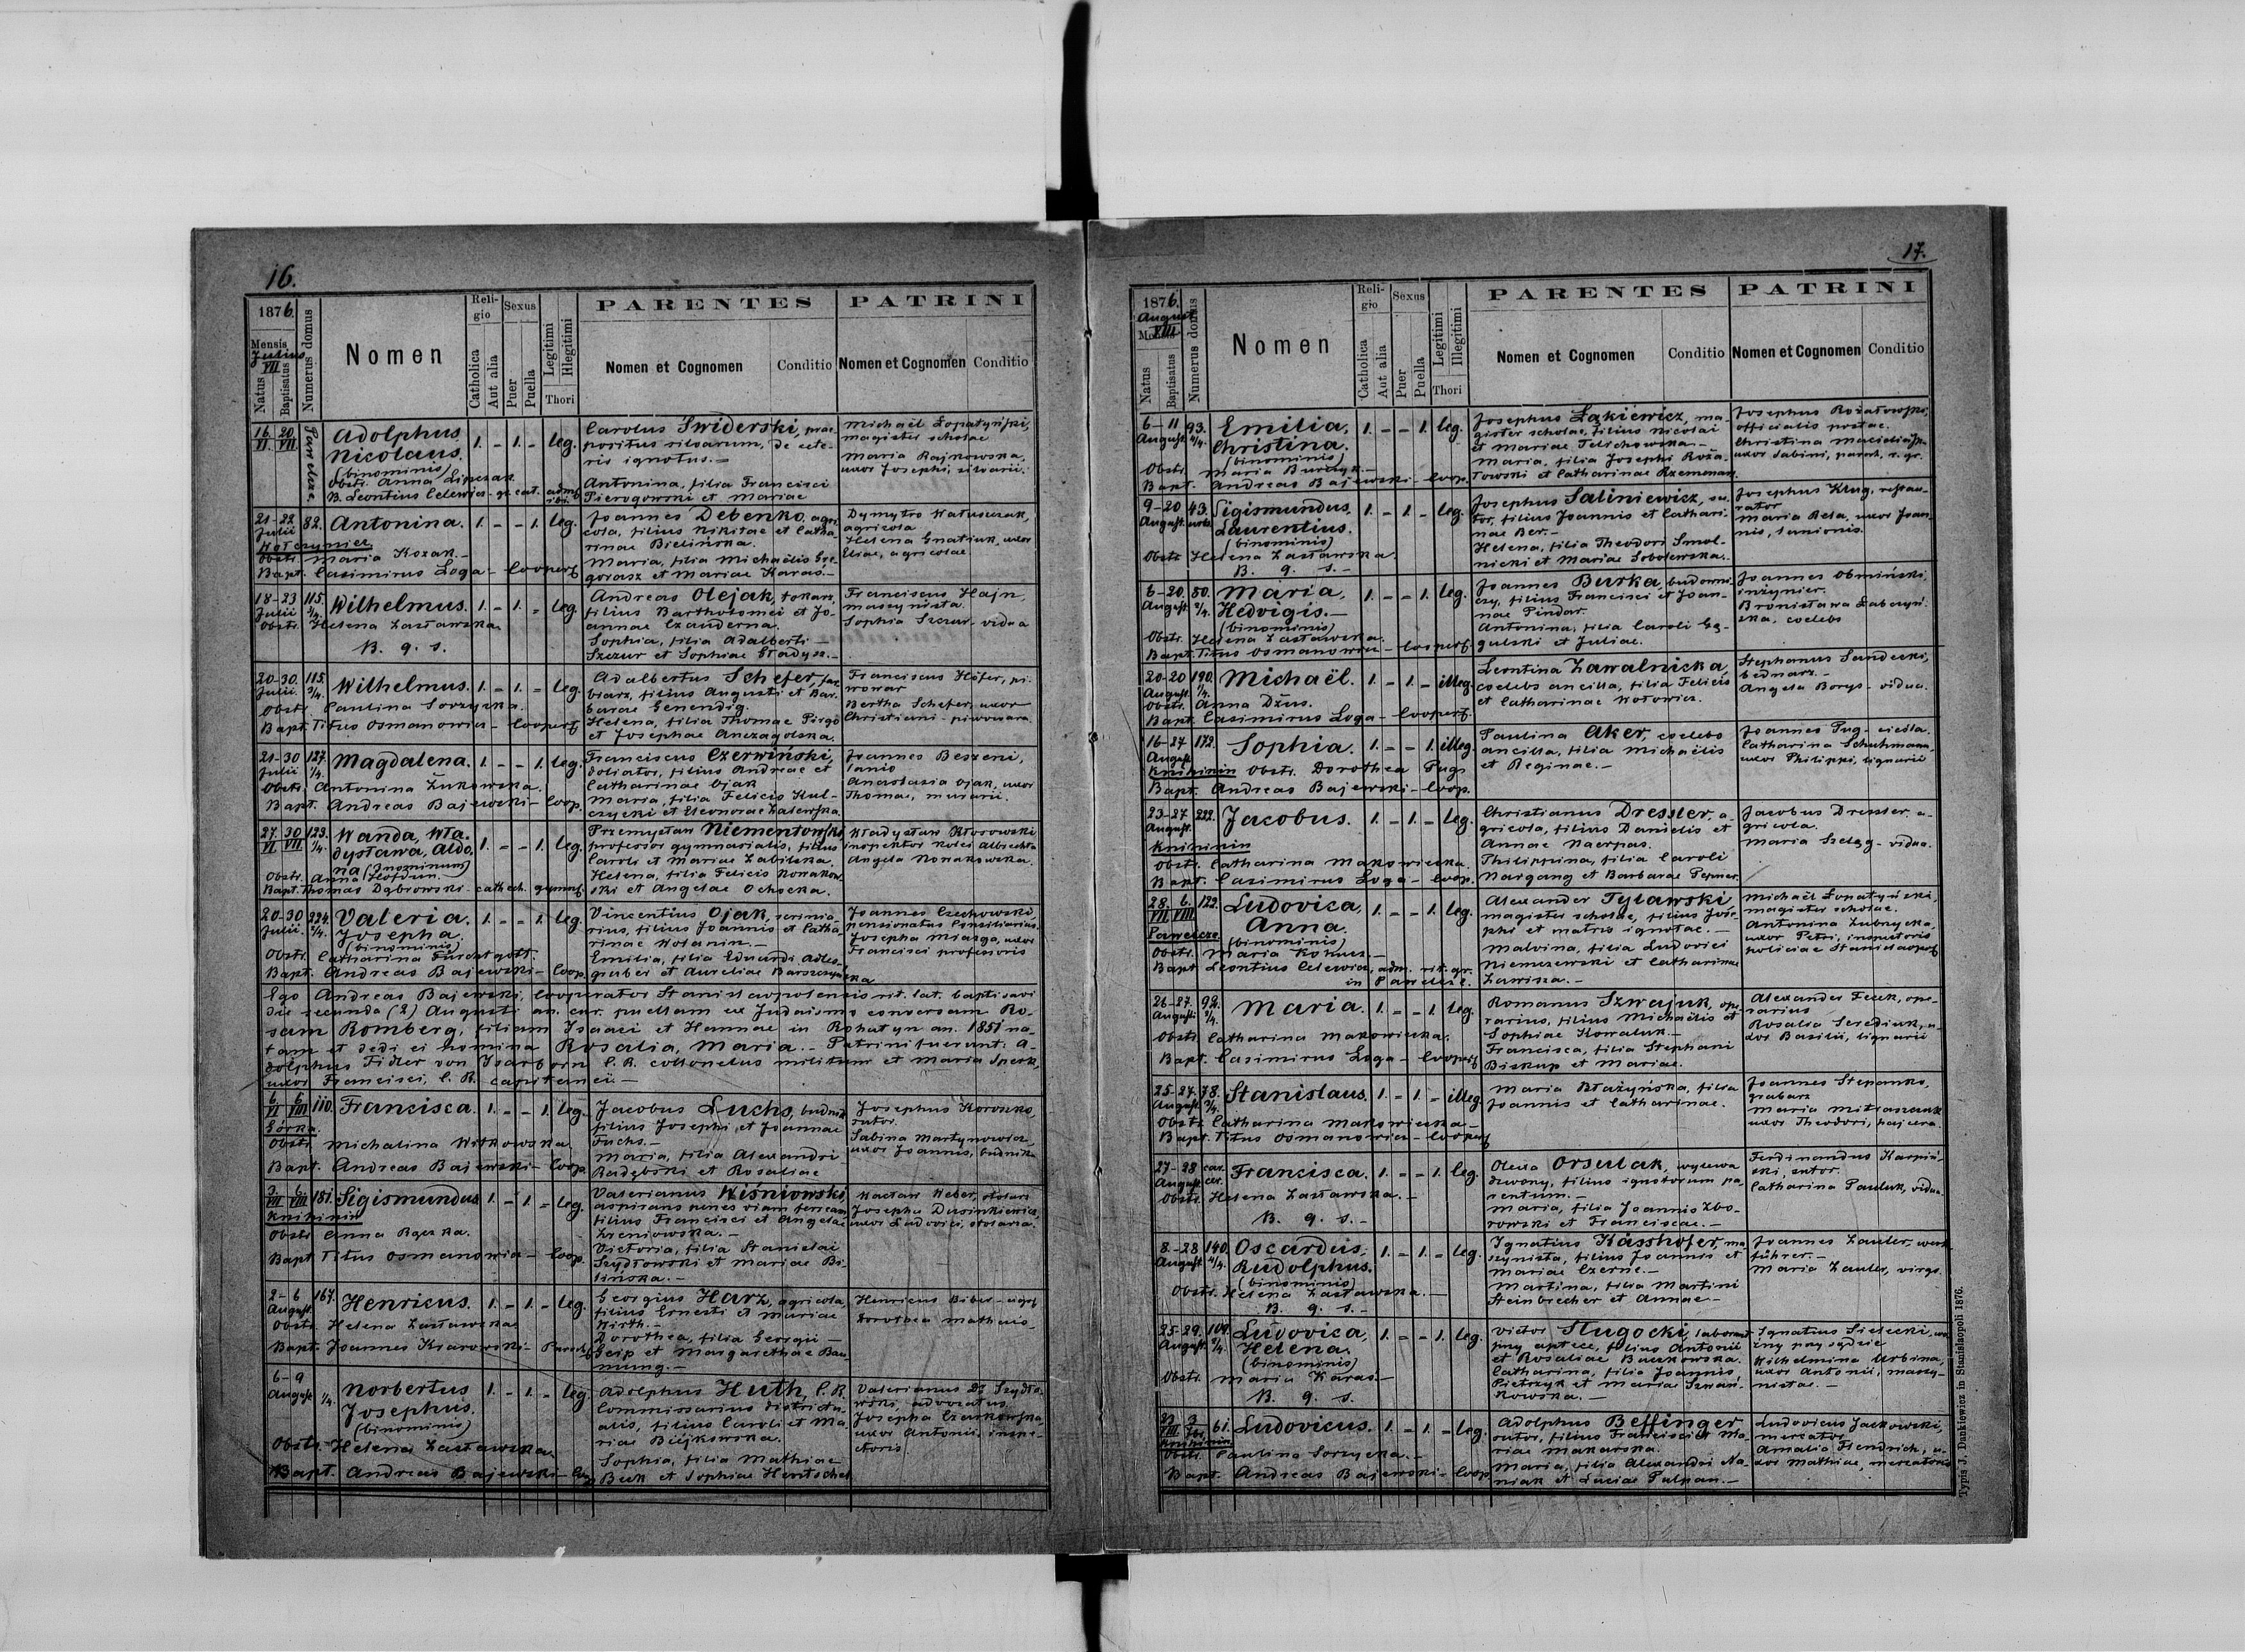 16.
1876.
Mensis
Julius
VII.
Natus
Baptisatus
Numerus domus
Nomen
Reli-
gio
Catholica
Aut alia
Sexus
Puer
Puella
Legitimi
Illegitimi
Thori
PARENTES
Nomen et Cognomen
Conditio
PATRINI
Nomen et Cognomen
Conditio
16. 20.
VI. VII.
Adolphus
Nicolaus.
(binominis)
Obstr. Anna Lipczak.
B. Leontius Celewicz - gr. cat.
1. - 1. - leg.
Carolus Świderski, prae-
positus silvarum, de cete-
ris ignotus. -
Antonina, filia Francisci
Pierogowski et Mariae
Michaël Łopatyński,
magister scholae
Maria Rajkowska,
uxor Josephi, silvarii.
21-22
Julii
82. Antonina. 1. - - 1. leg.
Wołczyniec
Obstr. Maria Kozak. -
Bapt. Casimirus Loga - Cooper.
Joannes Debenko, agri-
cola, filius Nikitae et Catha-
rinae Bielińska.
Maria, filia Michaëlis Gre-
gorasz et Mariae Karaś. -
Dymytro Matuszczak,
agricola
Helena Gnatiuk, uxor
Eliae, agricolae
18-23
Julii
115.
Wilhelmus. 1. - 1. - leg.
Obstr. Helena Zasławska
B. q. s.
Andreas Olejak, tokarz,
filius Bartholomei et Jo-
annae Czanderna.
Sophia, filia Adalberti
Szczur et Sophiae Gładysz. -
Franciscus Hajn,
maszynista.
Sophia Szczur - vidua
20-30.
Julii.
115.
Wilhelmus. 1. - 1. - leg.
Obstr. Paulina Sorzycka.
Bapt. Titus Osmanowicz - Cooper.
Adalbertus Schefer, far-
biarz, filius Augusti et Bar-
barae Genendig.
Helena, filia Thomae Pirgo
et Josephae Anczagolska.
Franciscus Höfer, pi-
wowar
Bertha Schefer, uxor
Christiani - piwowara
21-30
Julii
127.
Magdalena. 1. - - 1. leg.
Obstr. Antonina Żukowska.
Bapt. Andreas Bajewski - Coop.
Franciscus Czerwiński,
doliator, filius Andreae et
Catharinae Ojak
Maria, filia Felicis Kul-
czycki et Eleonorae Zalewska.
Joannes Beszeni,
lanio
Anastazia Ojak, uxor
Thomae, murarii.
27. 30
VI. VII.
123.
Wanda, Wła-
dysława, Aldo-
na
Bapt. Thomas Dąbrowski - catech. gymn.
1. - - 1. leg.
Przemysław Niementowski
professor gymnasialis, filius
Caroli et Mariae Zabilska.
Helena, filia Felicis Nowakow-
ski et Angelae Ochocka.
Władysław Kłosowski
inspektor kolei Albrechta
Angela Nowakowska.
20-30
Julii.
224.
Valeria.
Josepha.
(binominis)
1. - - 1. leg.
Obstr. Catharina Fürchtgott.
Bapt. Andreas Bajewski - Coop.
Vincentius Ojak, scrinia-
rius, filius Joannis et Catha-
rinae Wołanin. -
Emilia, filia Eduardi Adles-
gruber et Aureliae Barszczyńska
Joannes Czechowski,
pensionatus Consiliarius.
Josepha Miazga, uxor
Francisci professoris
Ego Andreas Bajewski, cooperator Stanislaopolensis rit. lat. baptisavi
die secunda (2) Augusti an. cur. puellam ex Judaismo conversam Ro-
sam Romberg, filiam Isaaci et Hannae in Rohatyn an. 1851 na-
tam et dedi ei nomina Rosalia, Maria. - Patrini fuerunt: A-
dolphus Fidler von Isarborn C. R. collonelus militum et Maria Speck,
uxor Francisci, C. R. capitanei. -
6. 6
VI VIII
110. Francisca. 1. - - 1. leg.
Górka.
Obstr. Michalina Witkowska
Bapt. Andreas Bajewski - Coop.
Jacobus Luchs, budnik
filius Josephi, et Joannae
Fuchs. -
Maria, filia Alexandri
Radębski et Rosaliae
Josephus Koroszko,
sutor.
Sabina Martynowicz,
uxor Joannis, budnika
3. 6.
VII VIII
181. Sigismundus 1. - 1. - leg.
Knihinin
Obstr. Anna Rączka.
Bapt. Titus Osmanowicz - Coop.
Valerianus Wiśniowski,
aspirans penes viam ferream,
filius Francisci et Angelae
Zreniowska. -
Victoria, filia Stanislai
Szydłowski et Mariae Bi-
lińska. -
Wacław Weber, stolarz
Josepha Dusinkiewicz,
uxor Ludovici, stolarza.
2- 6
August.
167. Henricus. 1. - 1. - leg.
Obstr. Helena Zasławska
Bapt. Joannes Krasowski - Paroch.
Georgius Harz, agricola,
filius Ernesti et Mariae
Wirth. -
Dorothea, filia Georgii -
Geip et Margarethae Bau-
mung. -
Henricus Biber - agr.
Dorothea Matheis
6-9
August.
Norbertus
Josephus.
(binominis)
1. - 1. - leg.
Obstr. Helena Zasławska.
Bapt. Andreas Bajewski - Coop.
Adolphus Huth, C. R.
Commissarius districtu-
alis, filius Caroli et Ma-
riae Bujkowska.
Sophia, filia Mathiae
Beck et Sophiae Hentschel
Valerianus Dr Szydło-
wski, advocatus.
Josepha Czenkowska,
uxor Antonii, inspe-
ctoris
17.
1876.
August
VIII
Mensis
Natus
Baptisatus
Numerus domus
Nomen
Reli-
gio
Catholica
Aut alia
Sexus
Puer
Puella
Legitimi
Illegitimi
Thori
PARENTES
Nomen et Cognomen
Conditio
PATRINI
Nomen et Cognomen
Conditio
6-11
August.
93.
Emilia,
Christina.
(binominis)
1. - - 1. leg.
Obstr. Maria Burczyk. -
Bapt. Andreas Bajewski - Coop.
Josephus Łąkiewicz, ma-
gister scholae, filius Nicolai
et Mariae Telichowska. -
Maria, filia Josephi Roża-
łowski et Catharinae
Josephus Rożałowski,
officialis postae.
Christina
uxor Sabini, paroch. r. gr.
9-20
August.
43.
Sigismundus,
Laurentius.
(binominis)
1. - 1. - leg.
Obstr. Helena Zasławska
B. q. s. -
Josephus Saliniewicz, su-
tor, filius Joannis et Cathari-
nae Ber. -
Helena, filia Theodori Smol-
nicki et Mariae Sobolewska. -
Josephus Krug, restau-
rator
Maria Rela, uxor Joan-
nis, lanionis.
6-20.
August.
50.
Maria,
Hedvigis. -
(binominis)
1. - - 1. leg.
Obstr. Helena Zasławska.
Bapt. Titus Osmanowicz - Cooper.
Joannes Burka, budowni-
czy, filius Francisci et Joan-
nae Pindor.
Antonina, filia Caroli Gą-
gulski et Juliae.
Joannes Obmiński,
inżynier.
Bronisława Łabczyń-
ska, coelebs
20-20
August.
190.
Michaël. 1. - 1. - illeg.
Obstr. Anna Dżus.
Bapt. Casimirus Loga - Cooper.
Leontina Zawalnicka,
coelebs ancilla, filia Felicis
et Catharinae Wołowicz.
Stephanus Sandecki,
bednarz. -
Angela Borys - vidua.
16-27
August.
172. Sophia. 1. - - 1. illeg.
Knihinin Obstr. Dorothea Pugs
Bapt. Andreas Bajewski - Coop.
Paulina Aker, coelebs
ancilla, filia Michaëlis
et Reginae. -
Joannes Pug - cieśla.
Catharina Schuhmann,
uxor Philippi, lignarii
23-27
August.
222. Jacobus. 1. - 1. - leg.
Knihinin
Obstr. Catharina Makowiecka.
Bapt. Casimirus Loga - Coop.
Christianus Dressler, a-
gricola, filius Danielis et
Annae Naerpas.
Philippina, filia Caroli
Nargang et Barbarae
Jacobus Dressler, a-
gricola.
Maria Szeląg - vidua.
28. 6.
VII VIII
122. Ludovica,
Anna.
(binominis)
1. - - 1. leg.
Pawelcze
Obstr. Maria
Bapt. Leontius Celewicz, adm. rit. gr.
in Pawelcze.
Alexander Tylawski
magister scholae, filius Jose-
phi et matris ignotae. -
Malvina, filia Ludovici
Niemczewski et Catharinae
Zawisza. -
Michaël Łopatyński,
magister scholae.
Antonina Zubrycka,
uxor Petri, inspectoris
policiae Stanislaopol.
26-27.
August.
92.
Maria. 1. - - 1. leg.
Obstr. Catharina Makowiecka.
Bapt. Casimirus Loga - Cooper.
Romanus Szwajuk, ope-
rarius, filius Michaëlis et
Sophiae Kowaluk. -
Francisca, filia Stephani
Biskup et Mariae.
Alexander Fecek, ope-
rarius
Rosalia Serediuk, u-
xor Basilii, lignarii
25-27.
August.
78.
Stanislaus. 1. - 1. - illeg.
Obstr. Catharina Makowiecka -
Bapt. Titus Osmanowicz - Cooper.
Maria Błażyńska, filia
Joannis et Catharinae.
Joannes Stepanko,
grabarz
Maria
uxor Theodori,
27-28
August.
Francisca. 1. - - 1. leg.
Obstr. Helena Zasławska. -
B. q. s. -
Olexa Orsulak, wylewa
dzwony, filius ignotorum pa-
rentum. -
Maria, filia Joannis Zbo-
rowski et Franciscae. -
Ferdinandus Karpiń-
ski, sutor.
Catharina Pauluk, vidua.
8-28
August.
140.
Oscardus,
Rudolphus.
(binominis)
1. - 1. - leg.
Obstr. Helena Zasławska. -
B. q. s. -
Ignatius Kässhofer, ma-
szynista, filius Joannis et
Mariae Czerne. -
Martina, filia Martini
Steinbrecher et Annae -
Joannes Zauler, werk-
führer. -
Maria Zauler, virgo.
25-29.
August.
109.
Ludovica,
Helena.
(binominis)
1. - - 1. leg.
Obstr. Maria Karaś. -
B. q. s.
Victor Sługocki, laborant
przy aptece, filius Antonii
et Rosaliae Baczkowska.
Catharina, filia Joannis
Pietrzyk et Mariae Szwań-
kowska. -
Ignatius Sielecki, wo-
źny przy sądzie
Wilhelmina Urbina,
uxor Antonii, maszy-
nistae. -
61. Ludovicus. 1. - 1. - leg.
Knihinin
Obstr. Paulina Sorzycka. -
Bapt. Andreas Bajewski - Coop.
Adolphus Beffinger
sutor, filius Francisci et Ma-
riae Makarska.
Maria, filia Alexandri Na-
niak et Luciae Pulpan. -
Ludovicus Jackowski,
mercator
Amalia Hendrich, u-
xor Mathiae, mercatoris
Typis J. Dankiewicz in Stanislaopoli 1876.